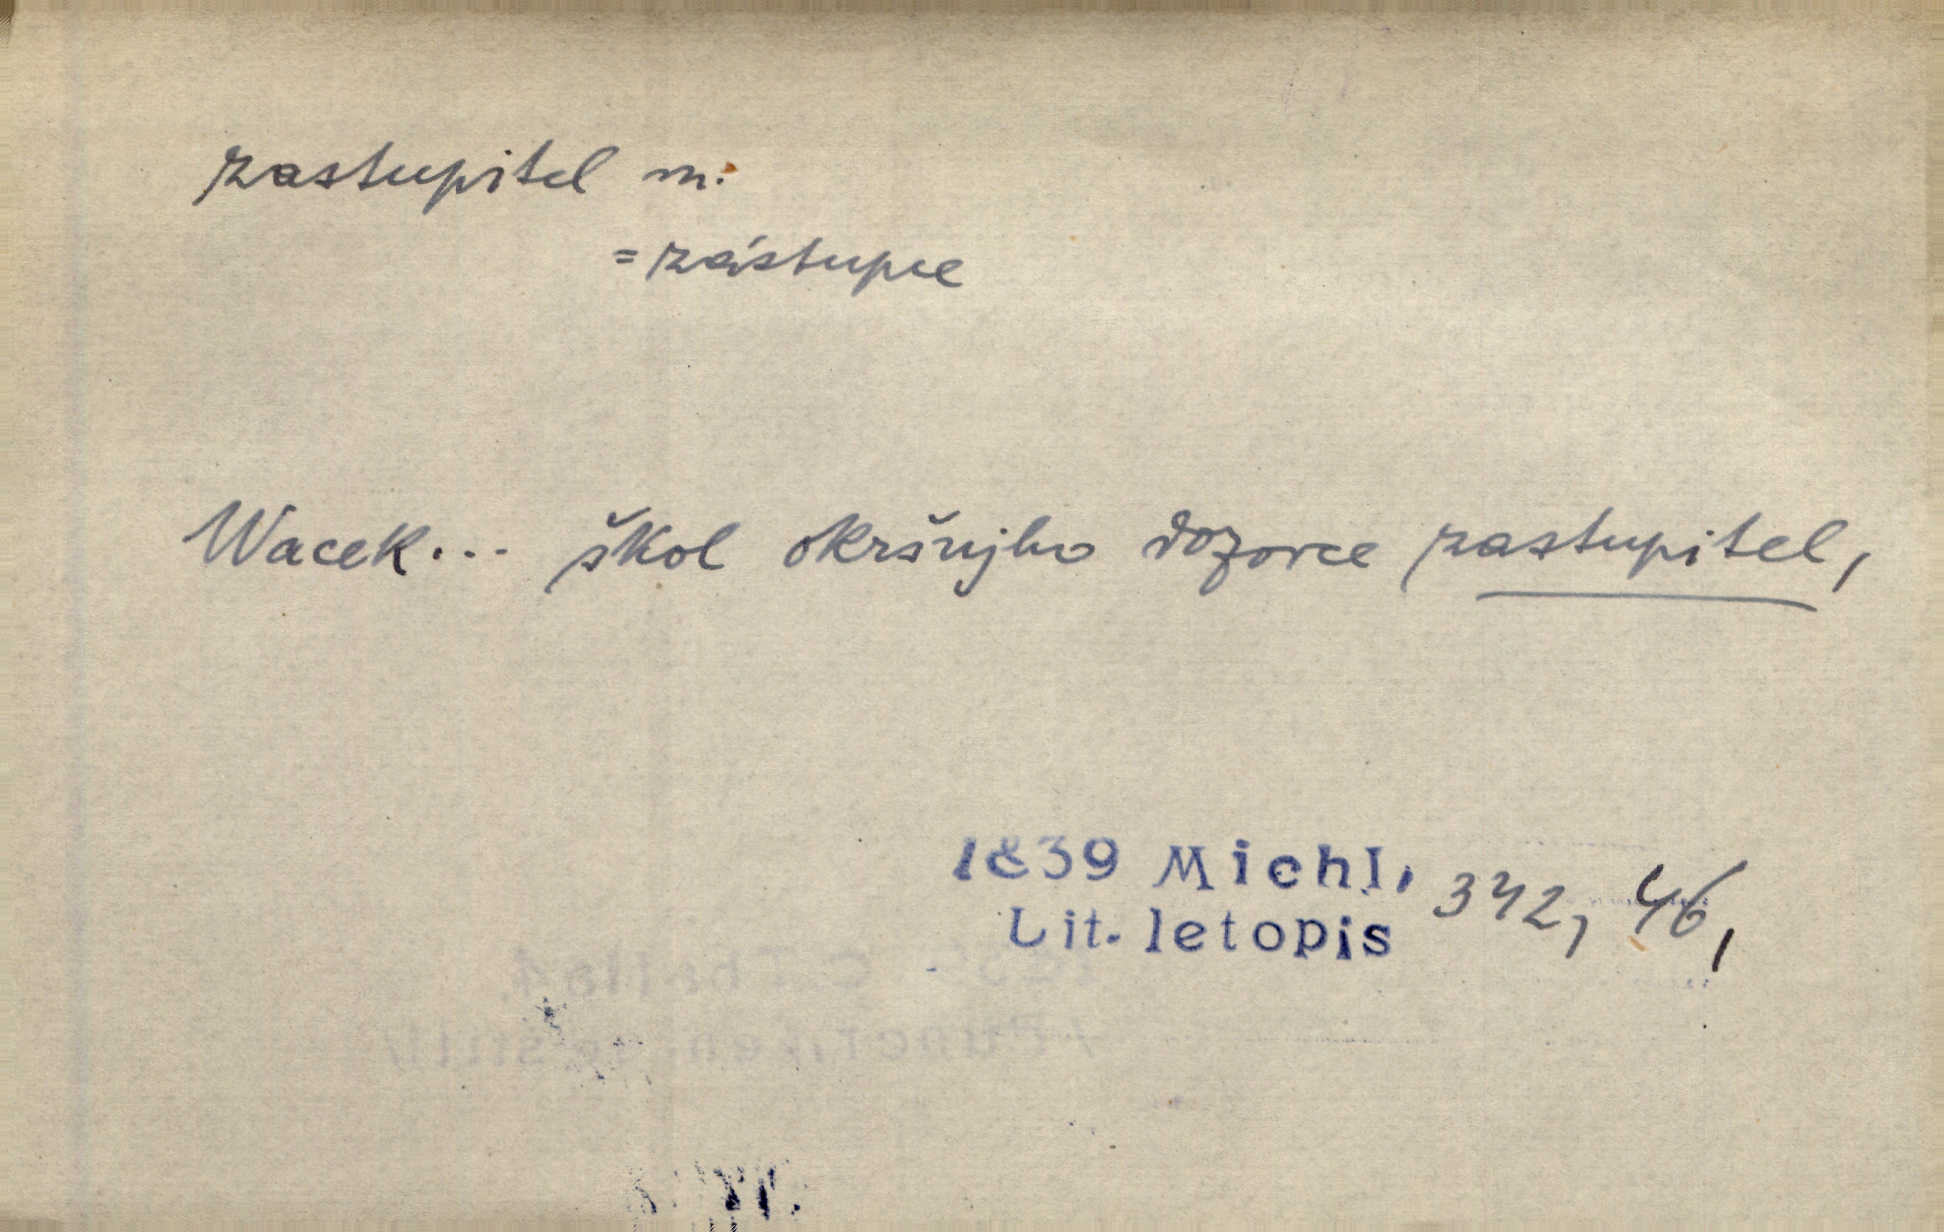 zastupitel m.
=zástupce
Wacek... škol okršnjho dozorce zastupitel,
1839 Michl, 342, 46,
Lit. letopis